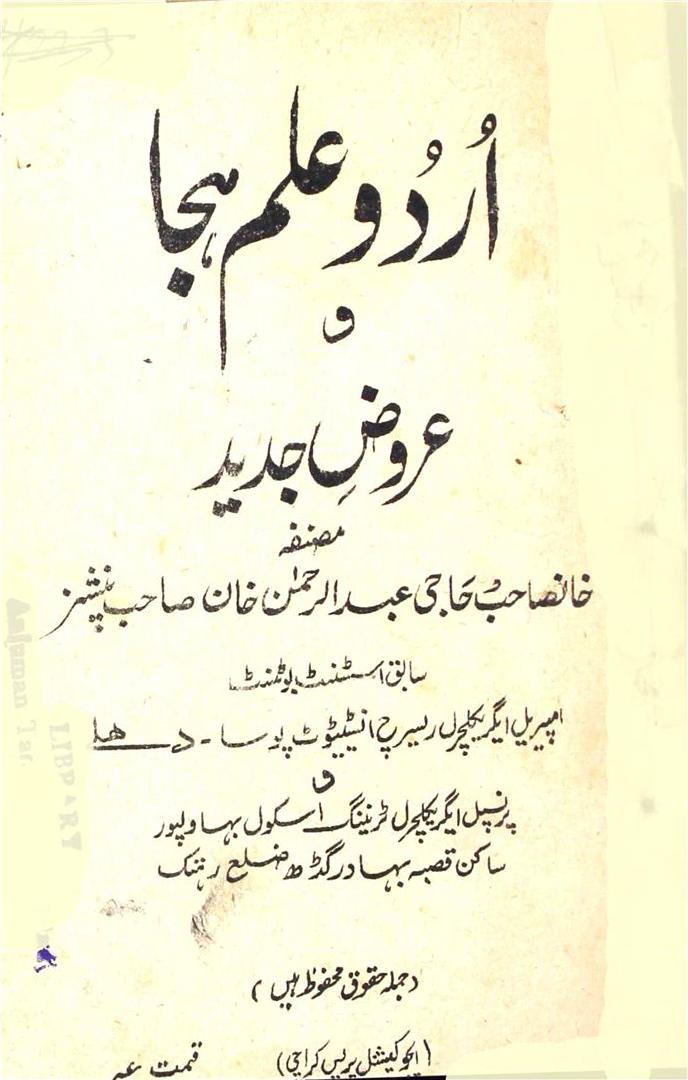 اُردُو علم ہجا
و
عروضِ جدید
مصنفہ
خانصاحب حاجی عبدالرحمٰن خان صاحب پنشنر
سابق اسسٹنٹ بوٹنسٹ
امپیریل ایگریکلچرل ریسرچ انسٹیٹوٹ پوسا - دھلی
و
پرنسپل ایگریکلچرل ٹریننگ اسکول بہاولپور
ساکن قصبہ بہادر گڈھ ضلع رہتک
(جملہ حقوق محفوظ ہیں)
(ایجوکیشنل پریس کراچی) قیمت
Anjuman Tar
LIBRARY